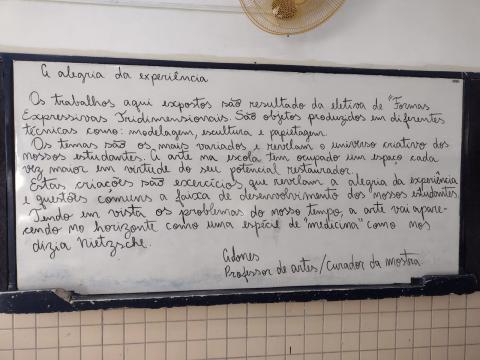 A alegria da experiência
Os trabalhos aqui expostos são resultado da eletiva de "Formas
Expressivas Tridimensionais. São objetos produzidos em diferentes
técnicas como: modelagem, escultura e papietagem.
Os temas são os mais variados e revelam o universo criativo dos
nossos estudantes. A arte na escola tem ocupado um espaço cada
vez maior em virtude do seu potencial restaurador.
Estas criações são exercícios que revelam a alegria da experiência
e questões comuns a faixa de desenvolvimento dos nossos estudantes.
Tendo em vista os problemas do nosso tempo, a arte vai apare-
cendo no horizonte como uma espécie de "medicina" como nos
dizia Nietzsche.
Adones
Professor de artes/curador da mostra.